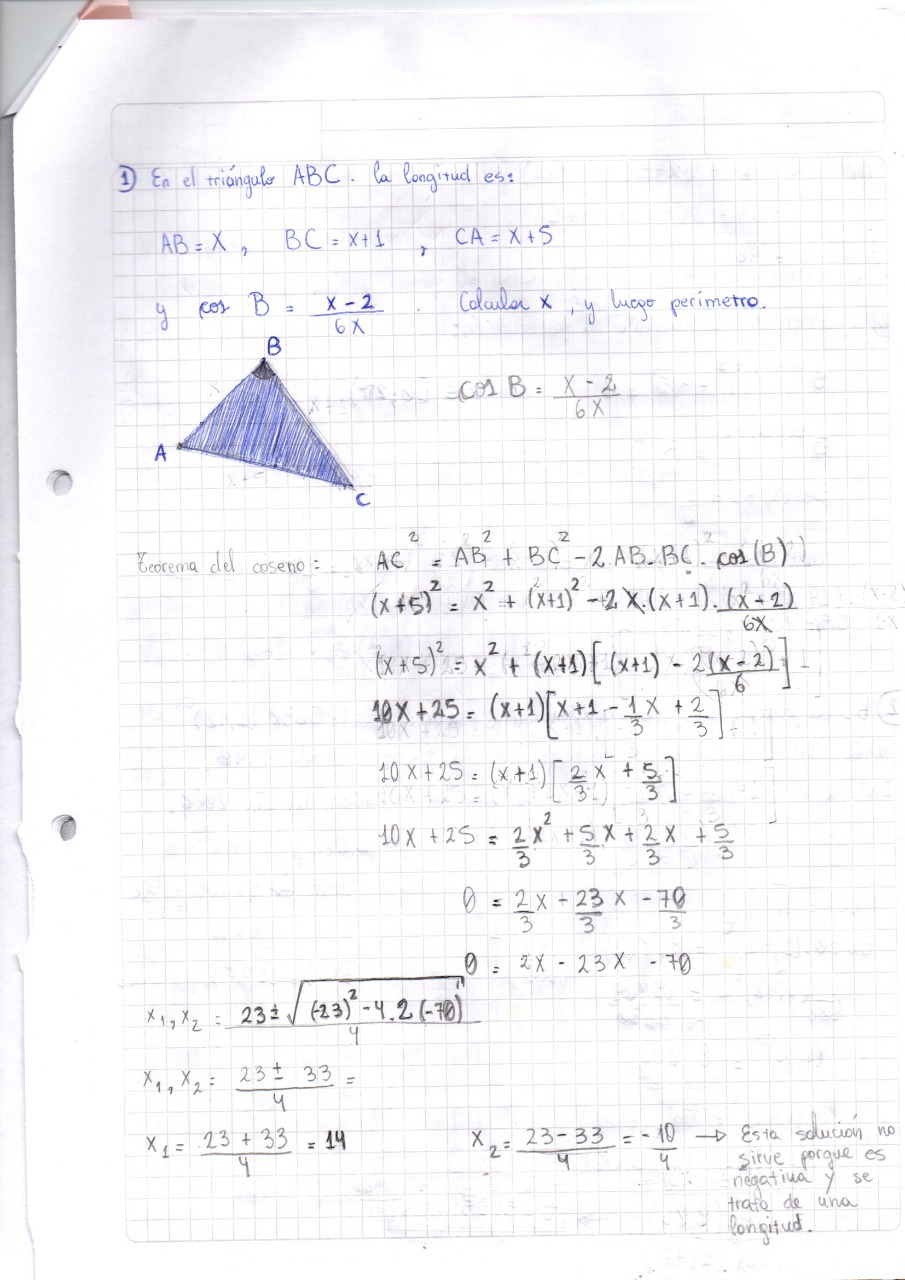 1) En el triángulo ABC. la longitud es:
AB = X, BC = X+1, CA = X+5
y cos B = \frac{X-2}{6X}. Calcular X, y luego perímetro.
B
cos B = \frac{X-2}{6X}
A
C
Teorema del coseno: AC² = AB² + BC² - 2 AB. BC. cos(B)
(x+5)² = x² + (x+1)² - 2 X.(x+1). \frac{(x-2)}{6X}
(x+5)² = x² + (x+1)[(x+1) - \frac{2(x-2)}{6}]
10X+25 = (x+1)[x+1 - \frac{1}{3}x + \frac{2}{3}]
10X+25 = (x+1)[\frac{2}{3}x + \frac{5}{3}]
10X+25 = \frac{2}{3}x² + \frac{5}{3}x + \frac{2}{3}x + \frac{5}{3}
0 = \frac{2}{3}x + \frac{23}{3}x - \frac{70}{3}
0 = 2X - 23X - 70
X₁, X₂ = \frac{23 ± \sqrt{(-23)² - 4.2(-70)}}{4}
X₁, X₂ = \frac{23 ± 33}{4} =
X₁ = \frac{23+33}{4} = 14 X₂ = \frac{23-33}{4} = -\frac{10}{4} → Esta solución no
sirve porque es
negativa y se
trata de una
longitud.